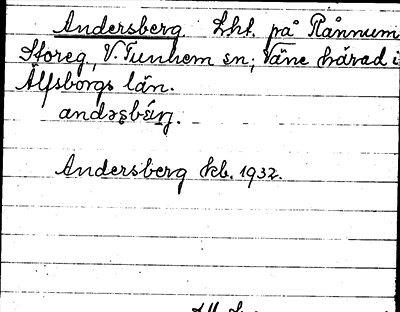 Andersberg Lht. på Rånnum
Storeg, V. Tunhem sn; Väne härad i
Älfsborgs län.
andəʂbǽrj.
Andersberg kb. 1932.